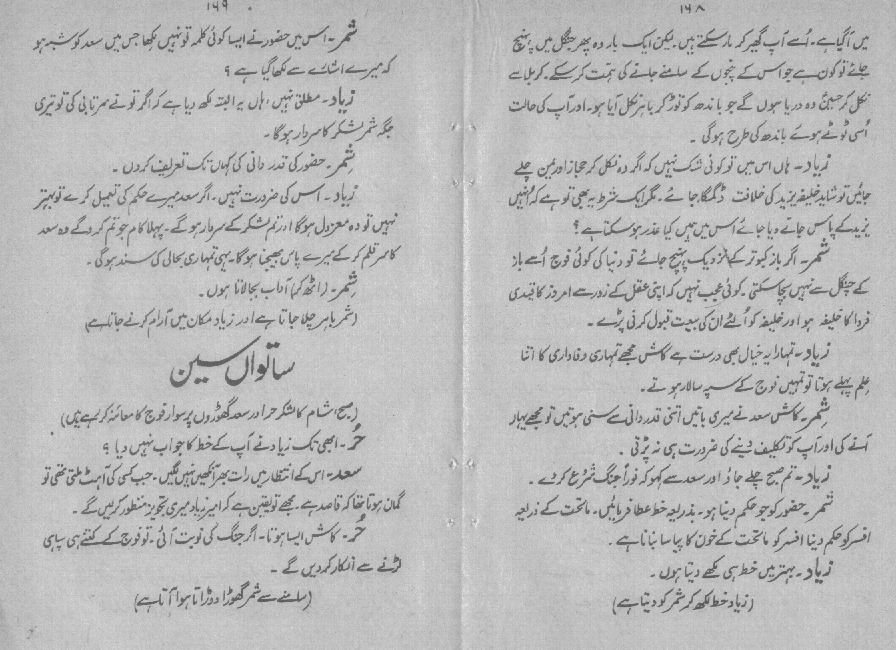 ۱۶۸
میں آگیا ہے۔ اُسے آپ گھیر کر مار سکتے ہیں۔ لیکن ایک بار وہ پھر جنگل میں پہنچ
جائے تو کون ہے جو اس کے پنجوں کے سامنے جانے کی ہمت کر سکے۔ کربلا سے
نکل کر حسینؑ وہ دریا ہوں گے جو باندھ کو توڑ کر باہر نکل آیا ہو۔ اور آپ کی حالت
اُسی ٹوٹے ہوئے باندھ کی طرح ہوگی۔
زیاد۔ ہاں اس میں تو کوئی شک نہیں کہ اگر وہ نکل کر حجاز اور یمن چلے
جائیں تو شاید خلیفہ یزید کی خلافت ڈگمگا جائے۔ مگر ایک شرط یہ بھی تو ہے کہ اُنہیں
یزید کے پاس جانے دیا جائے اس میں ہمیں کیا عذر ہو سکتا ہے؟
شمر۔ اگر باز کبوتر کے نزدیک پہنچ جائے تو دنیا کی کوئی فوج اُسے باز
کے چنگل سے نہیں بچا سکتی۔ کوئی عجب نہیں کہ اپنی عقل کے زور سے امروز کا قیدی
فردا کا خلیفہ ہو اور خلیفہ کو اُلٹے اُن کی بیعت قبول کرنی پڑے۔
زیاد۔ تمہارا یہ خیال بھی درست ہے کاش مجھے تمہاری وفاداری کا اتنا
علم پہلے ہوتا تو تمہیں فوج کے سپہ سالار ہوتے۔
شمر۔ کاش سعد نے میری باتیں اتنی قدردانی سے سنی ہوتیں تو مجھے یہاں
آنے کی اور آپ کو تکلیف دینے کی ضرورت ہی نہ پڑتی۔
زیاد۔ تم صبح چلے جاؤ اور سعد سے کہو کہ فوراً جنگ شروع کر دے۔
شمر۔ حضور کو جو حکم دینا ہو۔ بذریعہ خط عطا فرمائیں۔ ماتحت کے ذریعہ
افسر کو حکم دینا افسر کو ماتحت کے خون کا پیاسا بنانا ہے۔
زیاد۔ بہتر میں خط ہی لکھے دیتا ہوں۔
(زیاد خط لکھ کر شمر کو دیتا ہے)
۱۶۹
شمر۔ اس میں حضور نے ایسا کوئی کلمہ تو نہیں لکھا جس میں سعد کو شبہ ہو
کہ میرے اشارے سے لکھا گیا ہے؟
زیاد۔ مطلق نہیں، ہاں یہ البتہ لکھ دیا ہے کہ اگر تو نے سرتابی کی تو تیری
جگہ شمر لشکر کا سردار ہوگا۔
شمر۔ حضور کی قدردانی کی کہاں تک تعریف کروں۔
زیاد۔ اس کی ضرورت نہیں۔ اگر سعد میرے حکم کی تعمیل کرے تو بہتر
نہیں تو وہ معزول ہوگا اور تم لشکر کے سردار ہو گے۔ پہلا کام جو تم کرو گے وہ سعد
کا سر قلم کر کے میرے پاس بھیجنا ہوگا۔ یہی تمہاری بحالی کی سند ہوگی۔
شمر۔ (اٹھ کر) آداب بجا لاتا ہوں۔
(شمر باہر چلا جاتا ہے اور زیاد مکان میں آرام کرنے جاتا ہے)
ساتواں سین
(صبح: شام کا لشکر حر اور سعد گھوڑوں پر سوار فوج کا معائنہ کر رہے ہیں)
حُر۔ ابھی تک زیاد نے آپ کے خط کا جواب نہیں دیا؟
سعد۔ اس کے انتظار میں رات بھر آنکھیں نہیں لگیں۔ جب کسی کی آہٹ ملتی تھی تو
گمان ہوتا تھا کہ قاصد ہے۔ مجھے تو یقین ہے کہ امیر زیاد میری تجویز منظور کر لیں گے۔
حُر۔ کاش ایسا ہوتا۔ اگر جنگ کی نوبت آئی۔ تو فوج کے کتنے ہی سپاہی
لڑنے سے انکار کر دیں گے۔
(سامنے سے شمر گھوڑا دوڑاتا ہوا آتا ہے)